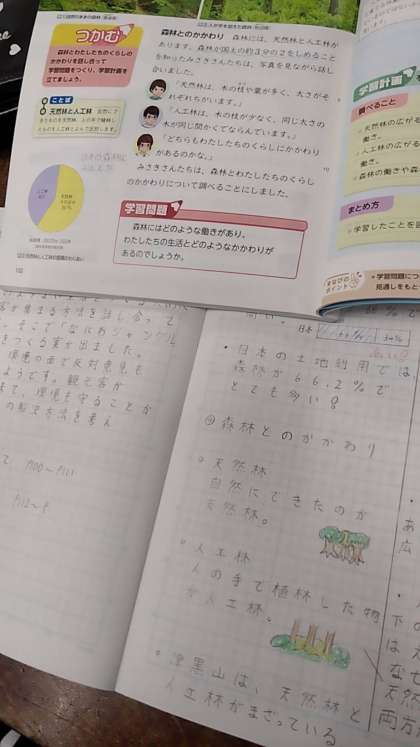 つかむ
森林とわたしたちのくらしの
かかわりを話し合って
学習問題をつくり、学習計画を
立てましょう。
ことば
天然林と人工林
人工林
天然林
森林とのかかわり 森林には、天然林と人工林が
あります。森林が国土の約3分の2をしめること
を知ったみさきさんたちは、写真を見ながら話し
合いました。
「天然林は、木の枝や葉が多く、太さがそ
れぞれちがいます。」
「人工林は、木の枝が少なく、同じ太さの
木が同じ間かくでならんでいます。」
「どちらもわたしたちのくらしにかかわり
があるのかな。」
みさきさんたちは、森林とわたしたちのくらし
のかかわりについて調べることにしました。
学習問題
森林にはどのような働きがあり、
わたしたちの生活とどのようなかかわりが
あるのでしょうか。
102
学習計画
調べること
天然林の広が
働き。
人工林の広が
働き。
森林の働きや森
まとめ方
学習したことを
まなびの
ポイント
学習問題につ
見通しをもと
日本
・日本の土地利用では
森林が66.2%で
とても多い。
森林とのかかわり
天然林
自然にできたのが
天然林。
人工林
人の手で植林した物
が人工林。
山は、天然林と
人工林がまざっている
そこで「なにわジャングル
をつくる案が出ました。
環境の面で反対意見も
ようです。観光客が
環境を守ることが
あ
広
下の
は大
なぜ
天然
両方